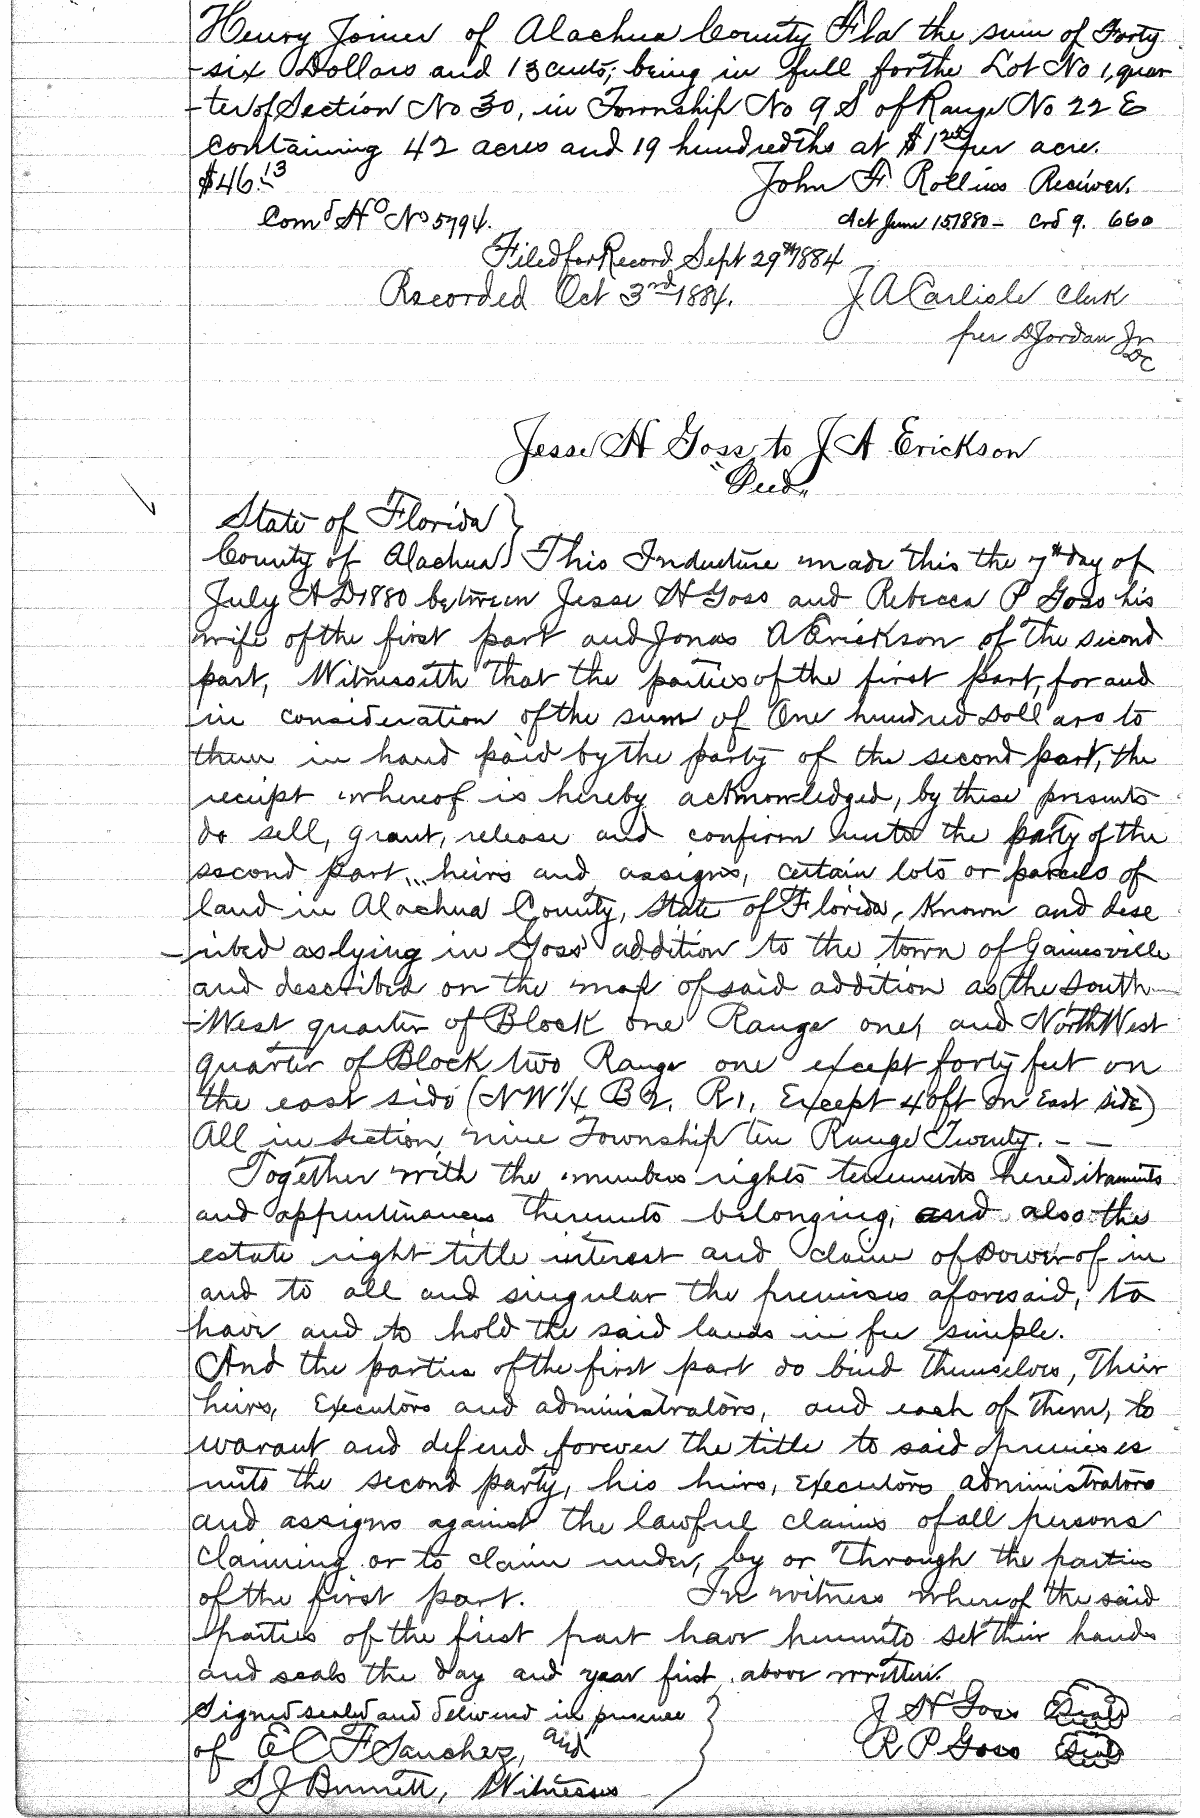 Henry Joiner of Alachua County Fla the sum of Forty
-six Dollars and 13 cents; being in full for the Lot No 1, quar
-ter of Section No 30, in Township No 9 S of Range No 22 E
containing 42 acres and 19 hundredths at $1 per acre.
$46.13 John F. Rollins Receiver.
Comd Ho No 5794. Act June 15 1880 - 660
Filed for Record Sept 29th 1884
Recorded Oct 3rd 1884. J A Carlisle Clerk
per D Jordan Jr
DC
Jesse H Goss to J A Erickson
"Deed"
State of Florida }
County of Alachua } This Indenture made this the 7th day of
July A D 1880 between Jesse H Goss and Rebecca P Goss his
wife of the first part and Jonas A Erickson of the second
part, Witnesseth that the parties of the first part, for and
in consideration of the sum of One hundred Dollars to
them in hand paid by the party of the second part, the
receipt whereof is hereby acknowledged, by these presents
do sell, grant, release and confirm unto the party of the
second part, heirs and assigns, certain lots or parcels of
land in Alachua County, State of Florida, Known and desc
-ribed as lying in Goss' addition to the town of Gainesville
and described on the map of said addition as the South
-West quarter of Block one Range one, and North West
quarter of Block two Range one except forty feet on
the east side (NW 1/4 B 2, R 1, Except 40 ft on East side)
All in section nine Township ten Range Twenty. - -
Together with the members rights tenements hereditaments
and appurtinances thereunto belonging, and also the
estate right title interest and claim of Dower of in
and to all and singular the premises aforesaid, to
have and to hold the said lands in fee simple.
And the parties of the first part do bind themselves, Their
heirs, Executors and administrators, and each of them, to
warant and defend forever the title to said premises
unto the second party, his heirs, Executors administrators
and assigns against the lawful claims of all persons
claiming or to claim under, by or Through the parties
of the first part. In witness whereof the said
parties of the first part have hereunto set their hands
and seals the day and year first above written.
Signed sealed and delivered in presence J H Goss Seal
of E C F Sanchez, and R P Goss Seal
S J Burnett, Witnesses